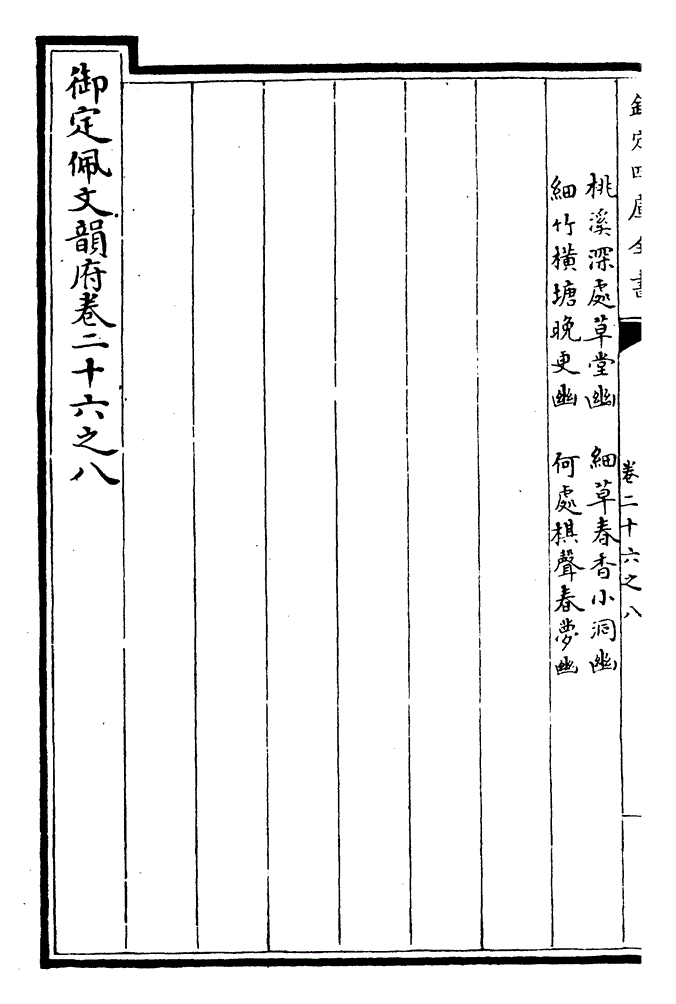 欽定四庫全書
卷二十六之八
桃溪深處草堂幽　細草春香小洞幽
細竹橫塘晚更幽　何處棋聲春夢幽
御定佩文韻府卷二十六之八